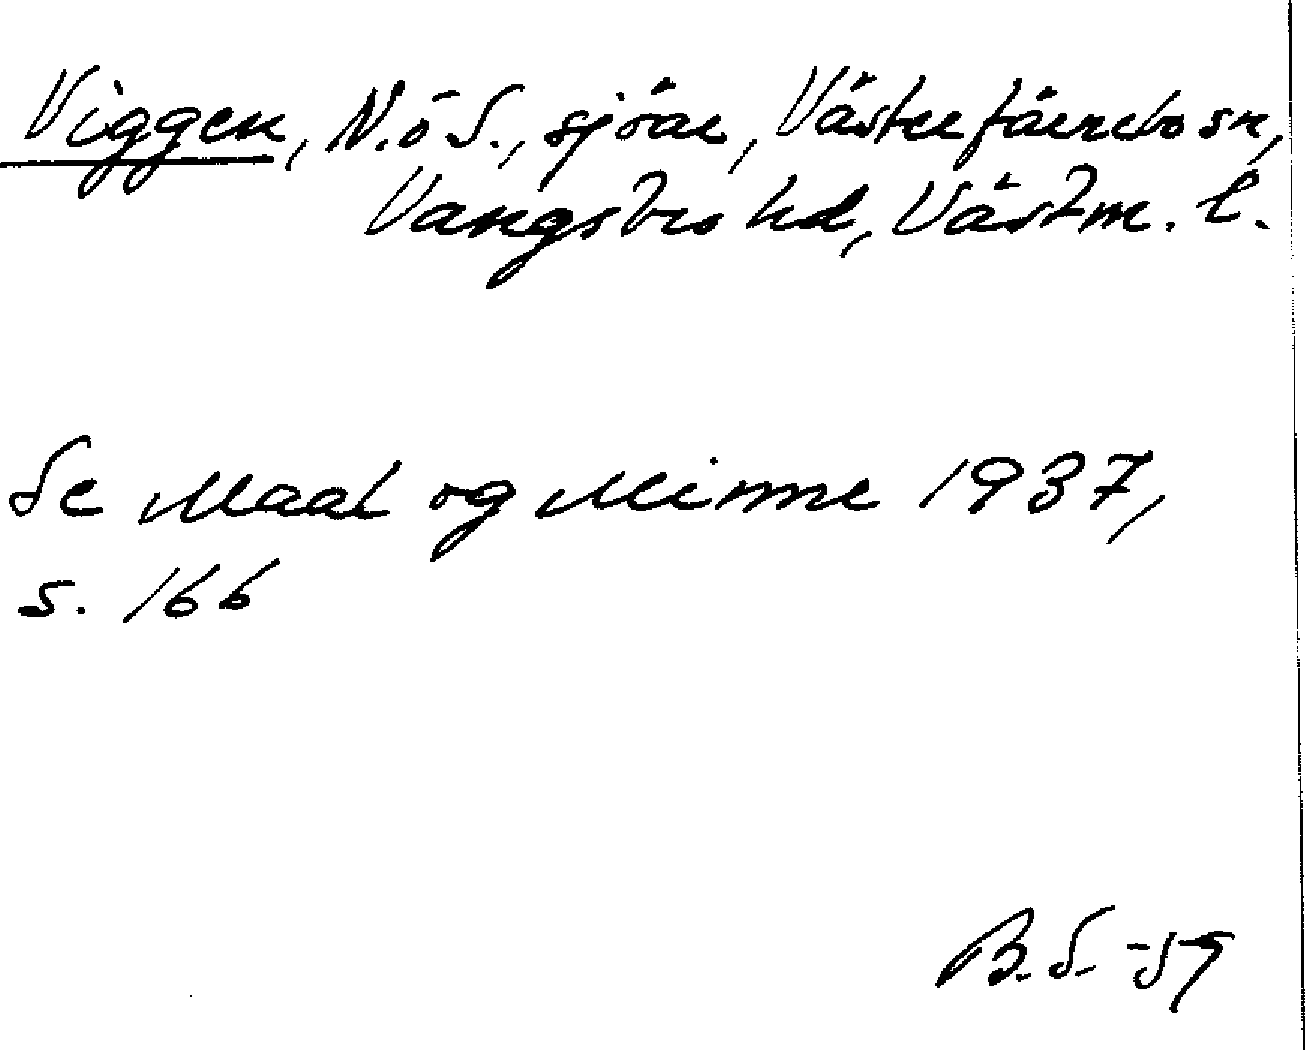 Viggen, N. ö S., sjöar, Västerfärnebo sn,
Vangsbro hd, Västm. l.
Se Maal og Minne 1937,
s. 166
B.S. -59